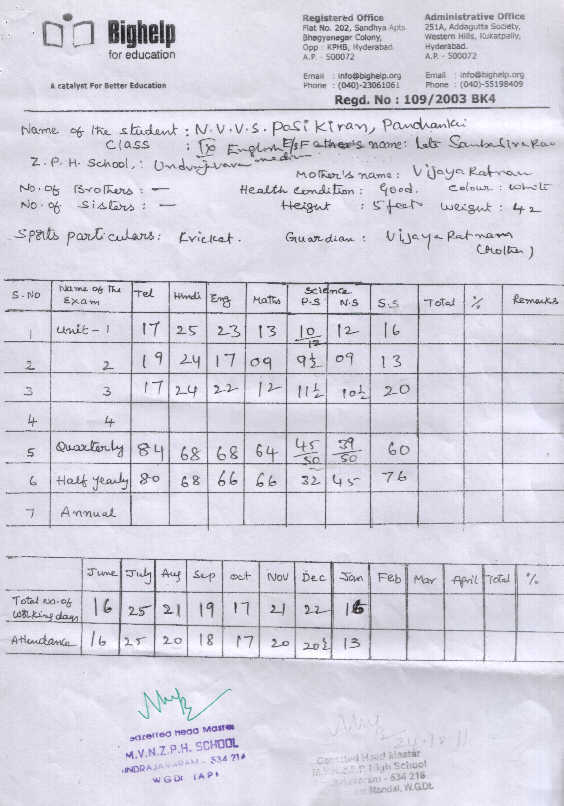 Bighelp
for education
A catalyst For Better Education
Registered Office
Flat No. 202, Sandhya Apts
Bhagyanagar Colony,
Opp : KPHB, Hyderabad.
A.P. - 500072
Email : info@bighelp.org
Phone : (040)-23061061
Administrative Office
251A, Addagutta Society,
Western Hills, Kukatpally,
Hyderabad.
A.P. - 500072
Email : info@bighelp.org
Phone : (040)-55198409
Regd. No : 109/2003 BK4
Name of the student : N.V.V.S. Pasi Kiran, Pandhanki
Class : IX English Father's name: Late Sambasiva Rao
Z.P.H. School,: medium
Mother's name: Vijaya Ratnam
No. of Brothers : — Health Condition : Good. Colour :
No. of Sisters : — Height : 5 feet Weight : 42
Sports particulars: Cricket. Guardian : Vijaya Ratnam
(Mother)
S.NO Name of the Exam Tel Hindi Eng Maths Science P.S N.S S.S Total % Remarks
1 Unit - 1 17 25 23 13 10/12 12 16
2 2 19 24 17 09 9½ 09 13
3 3 17 24 22 12 11½ 10½ 20
4 4
5 Quarterly 84 68 68 64 45/50 39/50 60
6 Half yearly 80 68 66 66 32 45 76
7 Annual
June July Aug Sep Oct Nov Dec Jan Feb Mar April Total %
Total no. of working days 16 25 21 19 17 21 22 16
Attendance 16 25 20 18 17 20 20½ 13
Head Master
M.V.N.Z.P.H. SCHOOL
- 534 216
W.GDt. (AP)
Head Master
M.V.N.Z.P. High School
- 534 216
Mandal, W.G.Dt.